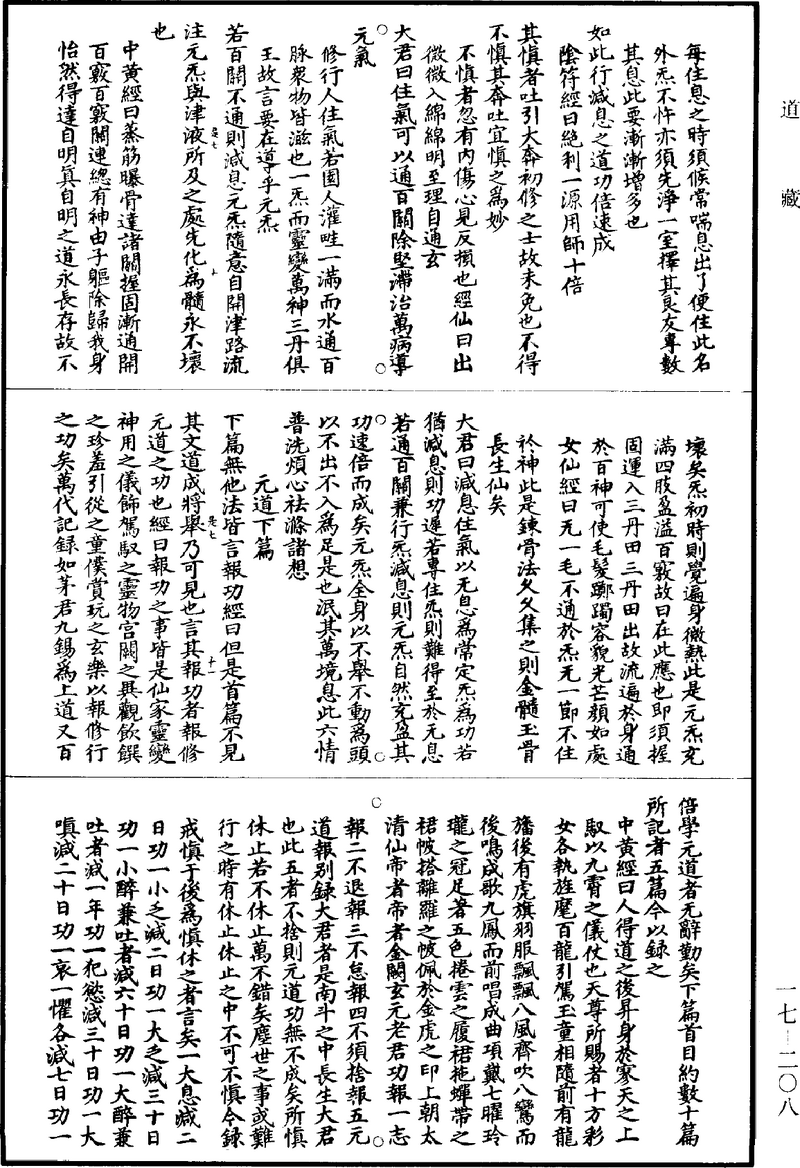 道藏
每住息之時須候常喘息出了便住此名
外炁不忤亦須先淨一室擇其良友專數
其息此要漸漸增多也
如此行減息之道功倍速成
陰符經曰絕利一源用師十倍
其慎者吐引大奔初修之士故未免也不得
不慎其奔吐宜慎之爲妙
不慎者忽有内傷心見反損也經仙曰出
微微入綿綿明至理自通玄
大君曰住氣可以通百關除堅滯治萬病導
元氣
修行人住氣若園人灌畦一滿而水通百
脉衆物皆滋也一炁而靈變萬神三丹俱
王故言要在導乎元炁
若百關不通則減息元炁隨意自開津路流
注元炁與津液所及之處先化爲髓永不壞
也
中黄經曰蒸筋曝骨達諸關握固漸通開
百竅百竅關連總有神由子軀除歸我身
怡然得達自明真自明之道永長存故不
壞矣炁初時則覺遍身微熱此是元炁充
滿四肢盈溢百竅故曰在此應也即須握
固運入三丹田三丹田出故流遍於身通
於百神可使毛髮躑躅容貌光芒顔如處
女仙經曰无一毛不通於炁元一節不住
於神此是錬骨法久久集之則金髓玉骨
長生仙矣
大君曰減息住氣以无息爲常定炁爲功若
猶減息則功遲若專住炁則難得至於元息
若通百關兼行炁減息則元炁自然充盈其
功速倍而成矣元炁全身以不舉不動爲頭
以不出不入爲足是也泯其萬境息此六情
普洗煩心袪滌諸想
元道下篇
下篇無他法皆言報功經曰但是首篇不見
其文道成將舉乃可見也言其報功者報修
元道之功也經曰報功之事皆是仙家靈變
神用之儀飾駕馭之靈物宫闕之異觀飲饌
之珍羞引從之童僕賞玩之玄樂以報修行
之功矣萬代記録如茅君九錫爲上道又百
倍學元道者无辭勤矣下篇首目約數十篇
所記者五篇今以録之
中黄經曰人得道之後昇身於寥天之上
馭以九霄之儀仗也天尊所賜者十方彩
女各執旌麾百龍引駕玉童相隨前有龍
旛後有虎旗羽服飄飄八風齊吹八鸞而
後鳴成歌九鳳而前唱成曲項戴七曜玲
瓏之冠足著五色捲雲之履裙拖蟬帶之
裙帔搭離羅之帔佩於金虎之印上朝太
清仙帝者帝者金闕玄元老君功報一志
報二不退報三不怠報四不須捨報五元
道報别録大君者是南斗之中長生大君
也此五者不捨則元道功無不成矣所慎
休止若不休止萬不錯矣塵世之事或難
行之時有休止休止之中不可不慎今録
戒慎于後爲慎休之者言矣一大息減二
日功一小乏減二日功一大乏減三十日
功一小醉兼吐者減六十日功一大醉兼
吐者減一年功一犯慾減三十日功一大
嗔減二十日功一哀一懼各減七日功一
一七—二〇八